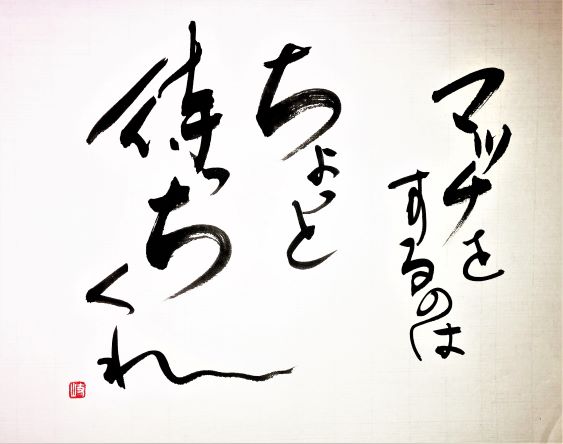 マッチを
するのは
ちょっと
待ちくれ